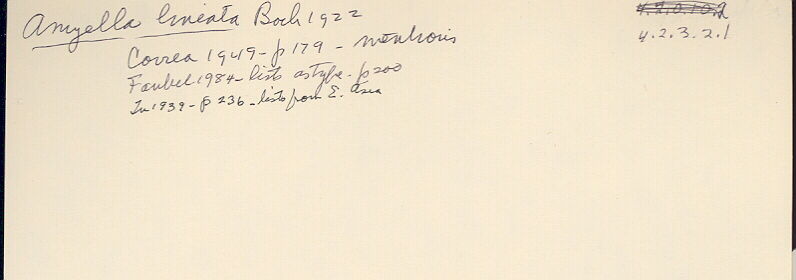 Amyella lineata Bock 1922
4.2.0.10.2
4.2.3.2.1
Correa 1949 - p 179 - mentions
Faubel 1984 - lists as type - p 200
Tu 1939 - p 236 - lists from E. Asia